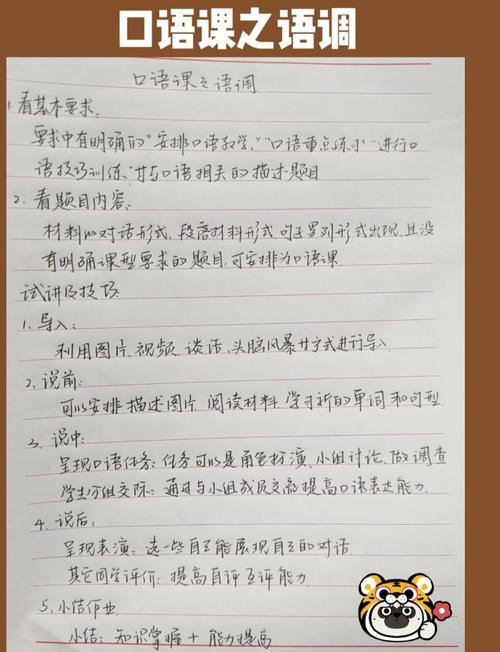 口语课之语调
口语课之语调
1.看基本要求.
要求中有明确的"安排口语教学""口语重点练习""进行口
语技巧训练"廿与口语相关的描述题目
2.看题目内容.
材料以对话形式,段落材料形式,句子罗列形式出现,且没
有明确课型要求的题目,可安排为口语课
试讲及技巧
1.导入:
利用图片.视频.谈话.头脑风暴廿方式进行导入.
2.说前:
可以安排描述图片.阅读材料.学习新的单词和句型.
3.说中:
呈现口语任务:任务可以是角色扮演.小组讨论.做调查
学生分组交际:通过与小组成员交流提高口语表达能力.
4.说后:
呈现表演:选一些自己能展现自己的对话
其它同学评价:提高自评互评能力
5.小结作业
小结:知识掌握+能力提高